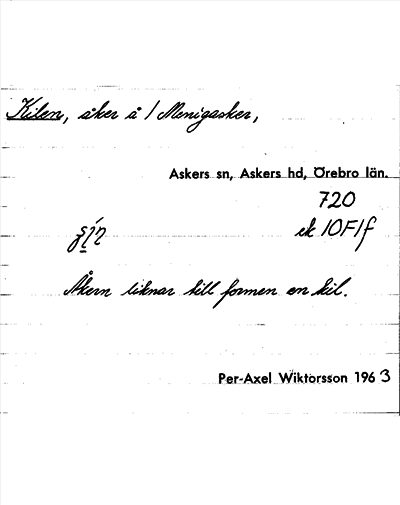 Kilen, åker å 1 Menigasker,
Askers sn, Askers hd, Örebro län.
720
ek 10F1f
Åkern liknar till formen en kil.
Per-Axel Wiktorsson 1963